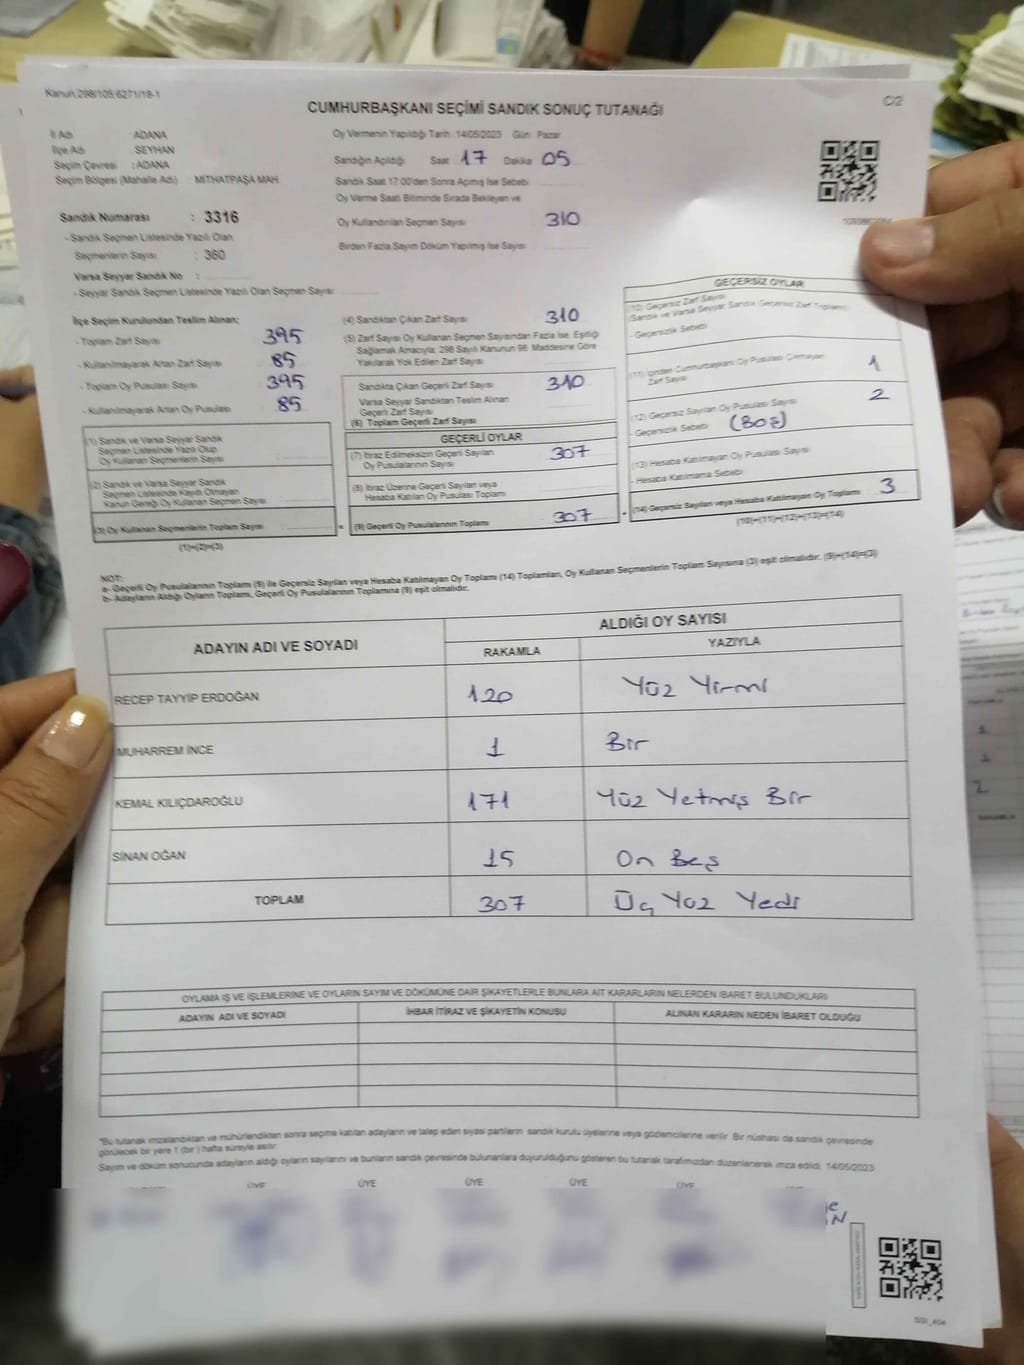 Kanun:298/105;6271/18-1
C/2
CUMHURBAŞKANI SEÇİMİ SANDIK SONUÇ TUTANAĞI
İl Adı ADANA
İlçe Adı SEYHAN
Seçim Çevresi : ADANA
Seçim Bölgesi (Mahalle Adı) : MİTHATPAŞA MAH.
Oy Vermenin Yapıldığı Tarih :14/05/2023 Gün: Pazar
Sandığın Açıldığı Saat 17 Dakika 05
Sandık Saat 17:00'den Sonra Açılmış İse Sebebi
Oy Verme Saati Bitiminde Sırada Bekleyen ve
Oy Kullandırılan Seçmen Sayısı 310
Birden Fazla Sayım Döküm Yapılmış İse Sayısı
Sandık Numarası : 3316
- Sandık Seçmen Listesinde Yazılı Olan
Seçmenlerin Sayısı : 360
Varsa Seyyar Sandık No :
- Seyyar Sandık Seçmen Listesinde Yazılı Olan Seçmen Sayısı:
İlçe Seçim Kurulundan Teslim Alınan;
- Toplam Zarf Sayısı 395
- Kullanılmayarak Artan Zarf Sayısı 85
- Toplam Oy Pusulası Sayısı 395
- Kullanılmayarak Artan Oy Pusulası 85
(1) Sandık ve Varsa Seyyar Sandık
Seçmen Listesinde Yazılı Olup
Oy Kullanan Seçmenlerin Sayısı
(2) Sandık ve Varsa Seyyar Sandık
Seçmen Listesinde Kayıtlı Olmayan
Kanun Gereği Oy Kullanan Seçmen Sayısı :
(3) Oy Kullanan Seçmenlerin Toplam Sayısı =
(1)+(2)=(3)
(4) Sandıktan Çıkan Zarf Sayısı 310
(5) Zarf Sayısı Oy Kullanan Seçmen Sayısından Fazla İse, Eşitliği
Sağlamak Amacıyla; 298 Sayılı Kanunun 98. Maddesine Göre
Yakılarak Yok Edilen Zarf Sayısı
Sandıkta Çıkan Geçerli Zarf Sayısı 310
Varsa Seyyar Sandıktan Teslim Alınan
Geçerli Zarf Sayısı
(6) Toplam Geçerli Zarf Sayısı
GEÇERLİ OYLAR
(7) İtiraz Edilmeksizin Geçerli Sayılan
Oy Pusulalarının Sayısı 307
(8) İtiraz Üzerine Geçerli Sayılan veya
Hesaba Katılan Oy Pusulası Toplamı
(9) Geçerli Oy Pusulalarının Toplamı 307 +
GEÇERSİZ OYLAR
(10) Geçersiz Zarf Sayısı
(Sandık ve Varsa Seyyar Sandık Geçersiz Zarf Toplamı)
- Geçersizlik Sebebi
(11) İçinden Cumhurbaşkanı Oy Pusulası Çıkmayan
Zarf Sayısı 1
(12) Geçersiz Sayılan Oy Pusulası Sayısı 2
- Geçersizlik Sebebi (Boş)
(13) Hesaba Katılmayan Oy Pusulası Sayısı
- Hesaba Katılmama Sebebi
(14) Geçersiz Sayılan veya Hesaba Katılmayan Oy Toplamı 3
(10)+(11)+(12)+(13)=(14)
NOT:
a- Geçerli Oy Pusulalarının Toplamı (9) ile Geçersiz Sayılan veya Hesaba Katılmayan Oy Toplamı (14) Toplamları, Oy Kullanan Seçmenlerin Toplam Sayısına (3) eşit olmalıdır. (9)+(14)=(3)
b- Adayların Aldığı Oyların Toplamı, Geçerli Oy Pusulalarının Toplamına (9) eşit olmalıdır.
ADAYIN ADI VE SOYADI
ALDIĞI OY SAYISI
RAKAMLA YAZIYLA
RECEP TAYYİP ERDOĞAN 120 Yüz Yirmi
MUHARREM İNCE 1 Bir
KEMAL KILIÇDAROĞLU 171 Yüz Yetmiş Bir
SİNAN OĞAN 15 On Beş
TOPLAM 307 Üç Yüz Yedi
OYLAMA İŞ VE İŞLEMLERİNE VE OYLARIN SAYIM VE DÖKÜMÜNE DAİR ŞİKAYETLERLE BUNLARA AİT KARARLARIN NELERDEN İBARET BULUNDUKLARI
ADAYIN ADI VE SOYADI İHBAR İTİRAZ VE ŞİKAYETİN KONUSU ALINAN KARARIN NEDEN İBARET OLDUĞU
*Bu tutanak imzalandıktan ve mühürlendikten sonra seçime katılan adayların ve talep eden siyasi partilerin sandık kurulu üyelerine veya gözlemcilerine verilir. Bir nüshası da sandık çevresinde
görülecek bir yere 1 (bir) hafta süreyle asılır.
Sayım ve döküm sonucunda adayların aldığı oyların sayılarını ve bunların sandık çevresinde bulunanlara duyurulduğunu gösteren bu tutanak tarafımızdan düzenlenerek imza edildi. 14/05/2023
ÜYE ÜYE ÜYE ÜYE ÜYE